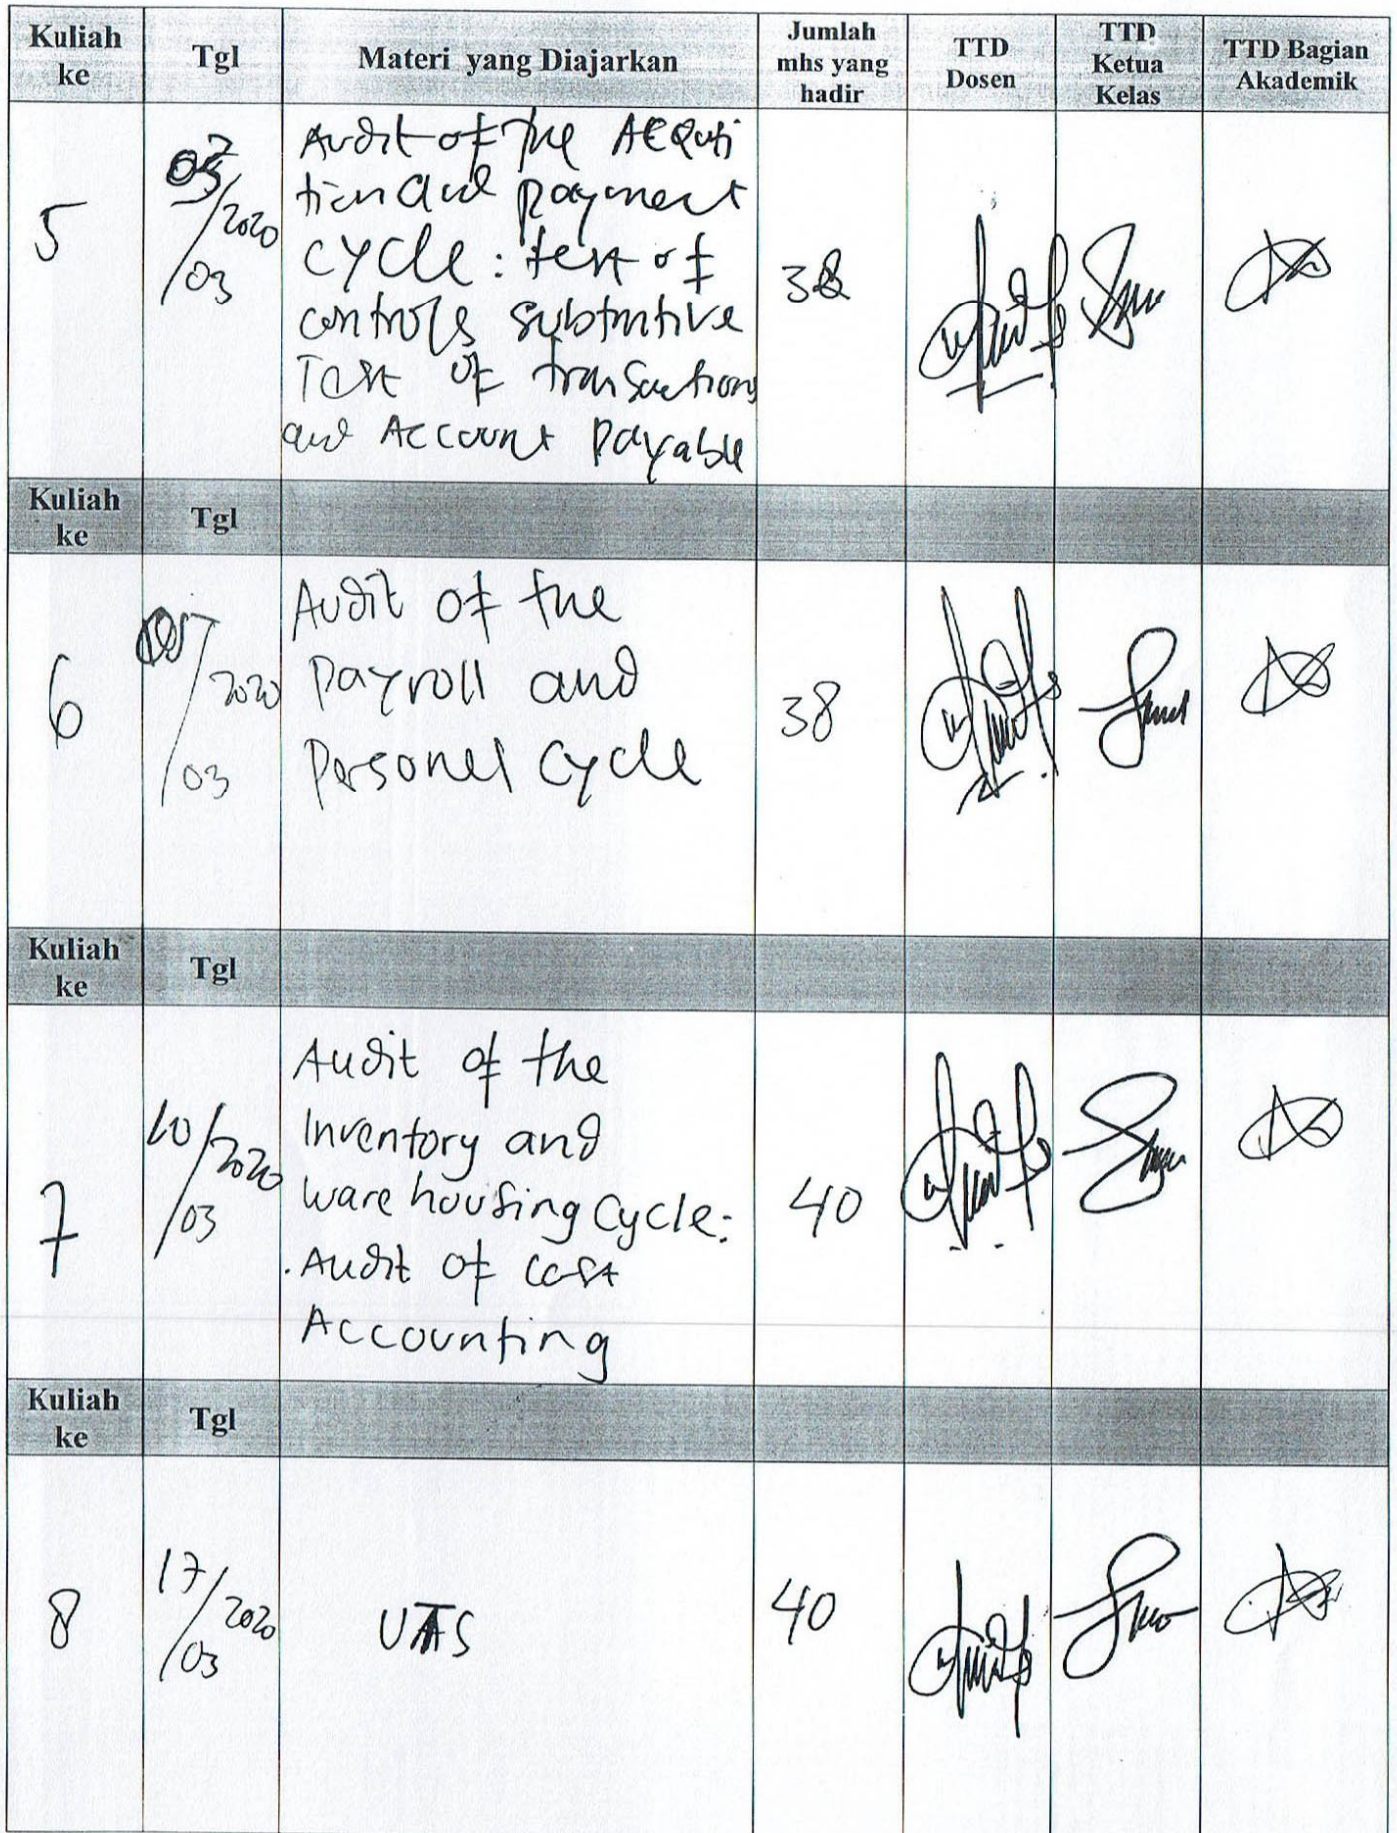 Kuliah ke
Tgl
Materi yang Diajarkan
Jumlah mhs yang hadir
TTD Dosen
TTD Ketua Kelas
TTD Bagian Akademik
5
/2020
/03
Audit of the AEQuti
tion and payment
cycle : test of
controls subtmtive
Test of transactions
and Account Payable
38
Kuliah ke
Tgl
6
/2020
/03
Audit of the
payroll and
Personel cycle
38
Kuliah ke
Tgl
7
10/2020
/03
Audit of the
Inventory and
ware housing Cycle:
. Audit of cost
Accounting
40
Kuliah ke
Tgl
8
17/2020
/03
UTS
40